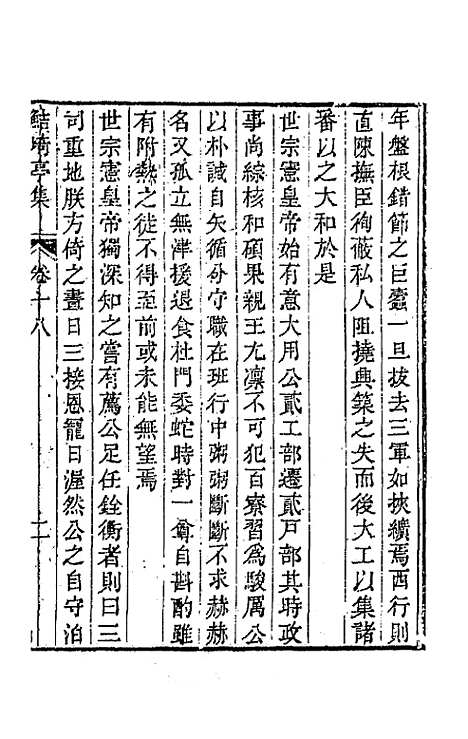 年盤根錯節之巨蠹一旦拔去三軍如挾纊焉西行則
直陳撫臣徇蔽私人阻撓興築之失而後大工以集諸
番以之大和於是
世宗憲皇帝始有意大用公貳工部遷貳戶部其時政
事尚綜核和碩果親王尤凛不可犯百寮習為駿厲公
以朴誠自矢循分守職在班行中粥粥斷斷不求赫赫
名又孤立無津援退食杜門委蛇時對一尊自斟酌雖
有附熱之徒不得至前或未能無望焉
世宗憲皇帝獨深知之嘗有薦公足任銓衡者則曰三
司重地朕方倚之晝日三接恩寵日渥然公之自守泊
鮚埼亭集
卷十八